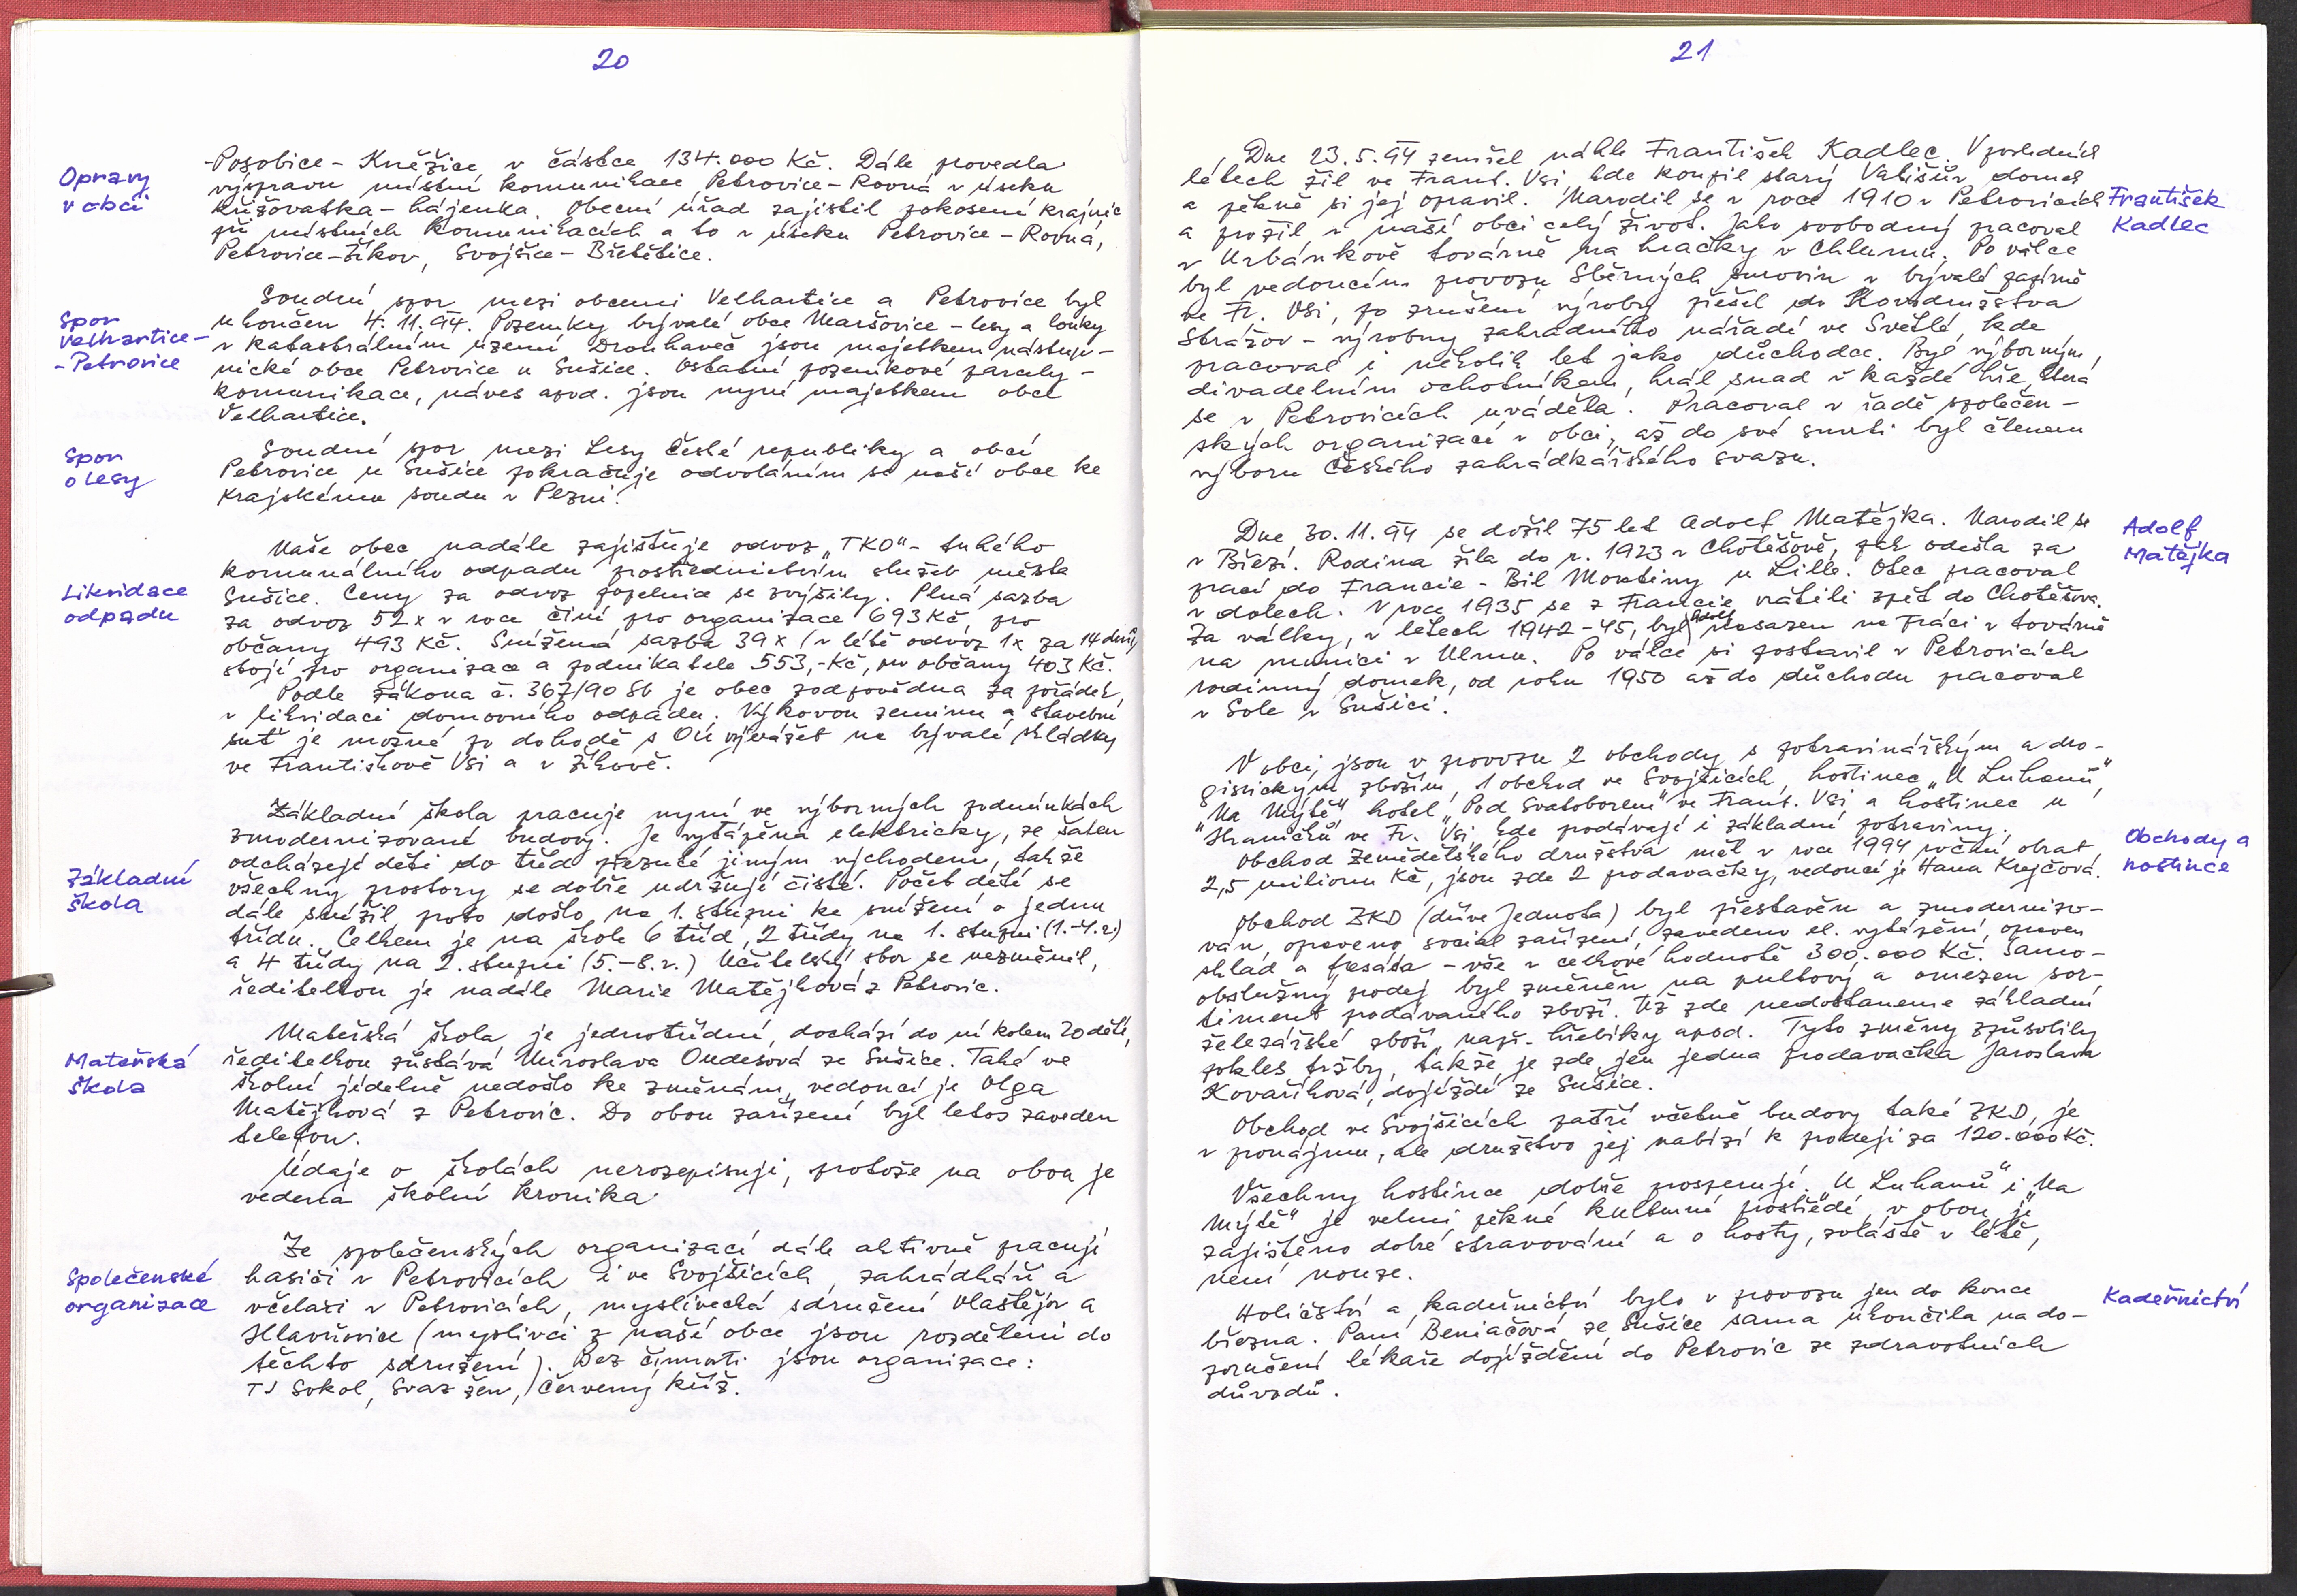 20
Opravy
v obci
-Posobice - Kněžice v částce 134.000 Kč. Dále provedla
výspravu místní komunikace Petrovice - Rovná v úseku
křižovatka - hájenka. Obecní úřad zajistil pokosení krajnic
při místních komunikacích a to v úseku Petrovice - Rovná,
Petrovice - Žíkov, Svojšice - Břetětice.
Spor
Velhartice -
- Petrovice
Soudní spor mezi obcemi Velhartice a Petrovice byl
ukončen 4.11.94. Pozemky bývalé obce Maršovice - lesy a louky
v katastrálním území Drouhaveč jsou majetkem nástup-
nické obce Petrovice u Sušice. Ostatní pozemkové parcely -
komunikace, náves apod. jsou nyní majetkem obce
Velhartice.
Spor
o lesy
Soudní spor mezi Lesy České republiky a obcí
Petrovice u Sušice pokračuje odvoláním se naší obce ke
Krajskému soudu v Plzni.
Likvidace
odpadu
Naše obec nadále zajišťuje odvoz „TKO" - tuhého
komunálního odpadu prostřednictvím služeb města
Sušice. Ceny za odvoz popelnic se zvýšily. Plná sazba
za odvoz 52x v roce činí pro organizace 693 Kč, pro
občany 493 Kč. Snížená sazba 39x (v létě odvoz 1x za 14 dnů)
stojí pro organizace a podnikatele 553,- Kč, pro občany 403 Kč.
Podle zákona č. 367/90 Sb je obec zodpovědna za pořádek
v likvidaci domovního odpadu. Výkovou zeminu a stavební
suť je možné po dohodě s OÚ vyvážet na bývalé skládky
ve Františkově Vsi a v Žíkově.
Základní
škola
Základní škola pracuje nyní ve výborných podmínkách
zmodernizované budovy. Je vytápěna elektricky, ze šaten
odcházejí děti do tříd přezuté jiným východem, takže
všechny prostory se dobře udržují čisté. Počet dětí se
dále snížil, proto došlo na 1. stupni ke snížení o jednu
třídu. Celkem je na škole 6 tříd, 2 třídy na 1. stupni (1.-4.r.)
a 4 třídy na 2. stupni (5.-8.r.) Učitelský sbor se nezměnil,
ředitelkou je nadále Marie Matějková z Petrovic.
Mateřská
škola
Mateřská škola je jednotřídní, dochází do ní kolem 20 dětí,
ředitelkou zůstává Miroslava Ondesová ze Sušice. Také ve
školní jídelně nedošlo ke změnám, vedoucí je Olga
Matějková z Petrovic. Do obou zařízení byl letos zaveden
telefon.
Údaje o školách nerozepisuji, protože na obou je
vedena školní kronika.
Společenské
organizace
Ze společenských organizací dále aktivně pracují
hasiči v Petrovicích i ve Svojšicích, zahrádkáři a
včelaři v Petrovicích, myslivecká sdružení Vlastějov a
Hlavňovice (myslivci z naší obce jsou rozděleni do
těchto sdružení). Bez činnosti jsou organizace:
TJ Sokol, Svaz žen, Červený kříž.
21
Dne 23.5.94 zemřel náhle František Kadlec. V posledních
létech žil ve Frant. Vsi, kde koupil starý Vališův domek
a pěkně si jej opravil. Narodil se v roce 1910 v Petrovicích
a prožil v naší obci celý život. Jako svobodný pracoval
v Urbánkově továrně na hračky v Chlumu. Po válce
byl vedoucím provozu Sběrných surovin v bývalé papírně
ve Fr. Vsi, po zrušení výroby přešel do Kovodružstva
Strážov - výrobny zahradního nářadí ve Světlé, kde
pracoval i několik let jako důchodce. Byl výborným
divadelním ochotníkem, hrál snad v každé hře, která
se v Petrovicích uváděla. Pracoval v řadě společen-
ských organizací v obci, až do své smrti byl členem
výboru Českého zahrádkářského svazu.
František
Kadlec
Dne 30.11.94 se dožil 75 let Adolf Matějka. Narodil se
v Březí. Rodina žila do r. 1923 v Chotěšově, pak odešla za
prací do Francie - Bil Montiny u Lille. Otec pracoval
v dolech. V roce 1935 se z Francie vrátili zpět do Chotěšova.
Za války, v letech 1942-45, byl Adolf nasazen na práci v továrně
na munici v Ulmu. Po válce si postavil v Petrovicích
rodinný domek, od roku 1950 až do důchodu pracoval
v Sole v Sušici.
Adolf
Matějka
V obci jsou v provozu 2 obchody s potravinářským a dro-
gistickým zbožím, 1 obchod ve Svojšicích, hostinec „U Luhanů",
„Na Mýtě" hotel „Pod Svatoborem" ve Frant. Vsi a hostinec u
Hraničků ve Fr. Vsi, kde prodávají i základní potraviny.
Obchod Zemědělského družstva měl v roce 1994 roční obrat
2,5 milionu Kč, jsou zde 2 prodavačky, vedoucí je Hana Krejčová.
Obchody a
hostince
Obchod ZKD (dříve Jednota) byl přestavěn a zmodernizo-
ván, opraveno sociál. zařízení, zavedeno el. vytápění, opraven
sklad a fasáda - vše v celkové hodnotě 300.000 Kč. Samo-
obslužný prodej byl změněn na pultový a omezen sor-
timent prodávaného zboží. Už zde nedostaneme základní
železářské zboží, např. hřebíky apod. Tyto změny způsobily
pokles tržby, takže je zde jen jedna prodavačka Jaroslava
Kovaříková, dojíždí ze Sušice.
Obchod ve Svojšicích patří včetně budovy také ZKD, je
v pronájmu, ale družstvo jej nabízí k prodeji za 120.000 Kč.
Všechny hostince dobře prosperují. „U Luhanů" i „Na
Mýtě" je velmi pěkné kulturní prostředí, v obou je
zajištěno dobré stravování a o hosty, zvláště v létě,
není nouze.
Holičství a kadeřnictví bylo v provozu jen do konce
března. Paní Beniačová ze Sušice sama ukončila na do-
poručení lékaře dojíždění do Petrovic ze zdravotních
důvodů.
Kadeřnictví